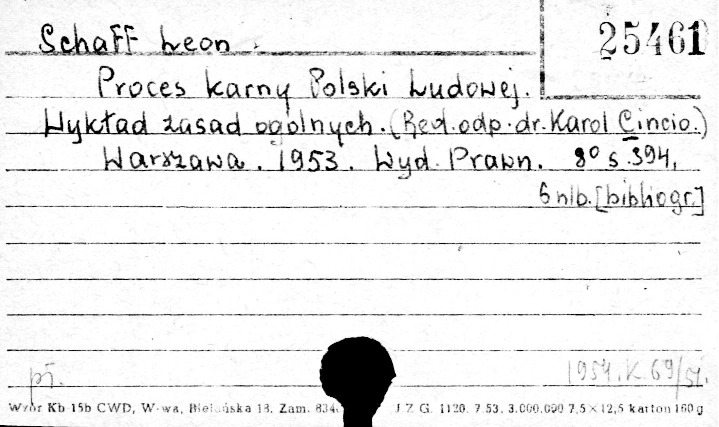 Schaff Leon. 25461
Proces karny Polski Ludowej.
Wykład zasad ogólnych. (Red. odp. dr. Karol Cincio.)
Warszawa. 1953. Wyd. Prawn. 8° s. 394,
6 nlb. [bibliogr.]
pł. 1954. K. 69/51.
Wzór Kb 15b CWD, W-wa, Bielańska 18. Zam. 834 J.Z.G. 1120. 7.53. 3.000.000 7,5×12,5 karton 160 g